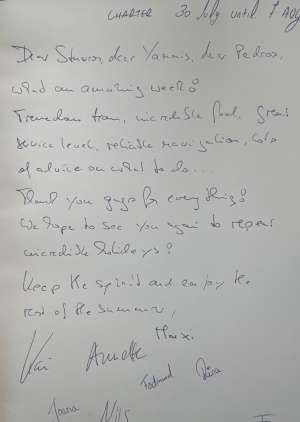 CHARTER 30 July until 7 Aug
Dear Stavros, dear Yannis, dear Pedros,
what an amazing week!
Tremendous team, incredible food, great
service level, reliable navigation, lots
of advice on what to do...
Thank you guys for everything!
We hope to see you again to repeat
incredible holidays!
Keep the spirit and enjoy the
rest of the summer,
Max.
Kai Annette
Ferdinand
Joana Nils